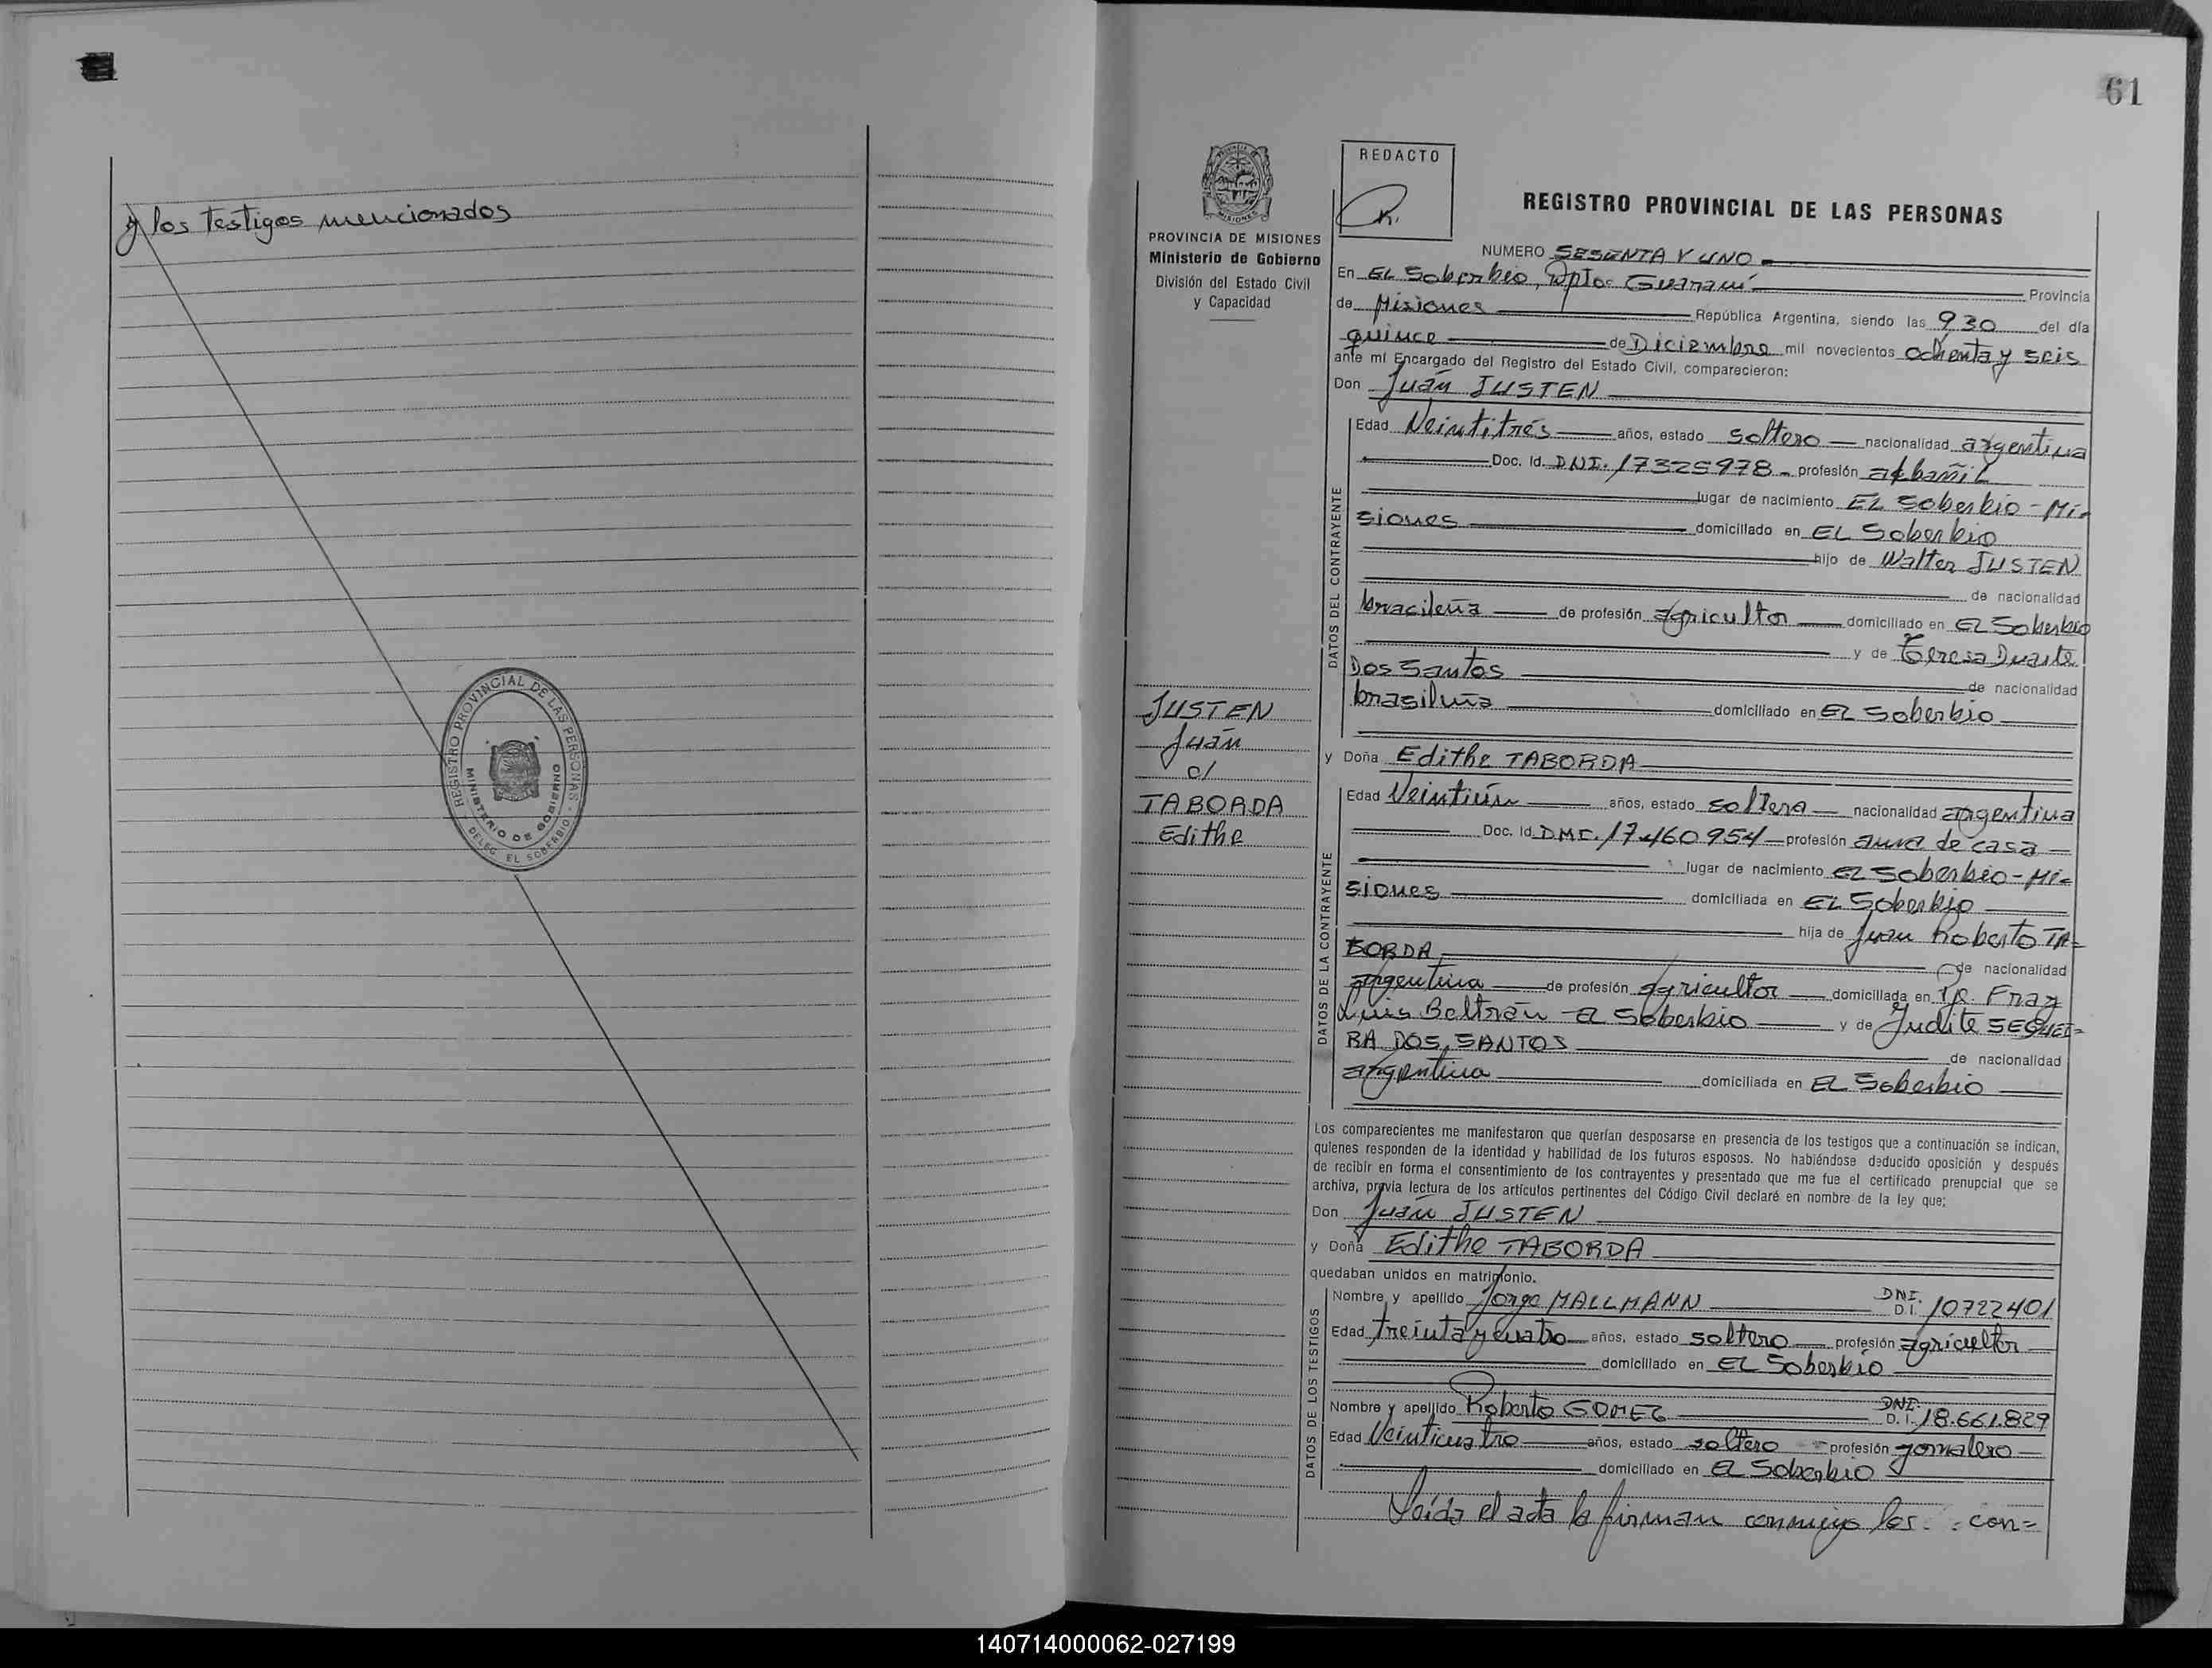 y los testigos mencionados
REGISTRO PROVINCIAL DE LAS PERSONAS
MINISTERIO DE GOBIERNO
DELEG. EL SOBERBIO
61
PROVINCIA DE MISIONES
Ministerio de Gobierno
División del Estado Civil
y Capacidad
REDACTO
REGISTRO PROVINCIAL DE LAS PERSONAS
NUMERO SESENTA Y UNO
En EL Soberbio, Dpto. Guaraní Provincia
de Misiones República Argentina, siendo las 9 30 del día
quince de Diciembre mil novecientos ochenta y seis
ante mí Encargado del Registro del Estado Civil, comparecieron:
Don Juán JUSTEN
DATOS DEL CONTRAYENTE
Edad Veintitrés años, estado soltero nacionalidad argentina
Doc. Id. DNI. 17325978 profesión albañil
lugar de nacimiento EL Soberbio - Mi-
siones domiciliado en EL Soberbio
hijo de Walter JUSTEN
de nacionalidad
brasileña de profesión agricultor domiciliado en EL Soberbio
y de Teresa Duarte
Dos Santos de nacionalidad
brasileña domiciliado en EL Soberbio
JUSTEN
Juán
c/
TABORDA
Edithe
y Doña Edithe TABORDA
DATOS DE LA CONTRAYENTE
Edad Veintiún años, estado soltera nacionalidad argentina
Doc. Id. 17.460.954 profesión ama de casa
lugar de nacimiento EL Soberbio - Mi=
siones domiciliada en EL Soberbio
hija de Juan Roberto TA=
BORDA de nacionalidad
argentina de profesión agricultor domiciliada en Fray
Luis Beltrán - EL Soberbio y de Judite SEQUEI=
RA DOS SANTOS de nacionalidad
argentina domiciliada en EL Soberbio
Los comparecientes me manifestaron que querían desposarse en presencia de los testigos que a continuación se indican,
quienes responden de la identidad y habilidad de los futuros esposos. No habiéndose deducido oposición y después
de recibir en forma el consentimiento de los contrayentes y presentado que me fue el certificado prenupcial que se
archiva, previa lectura de los artículos pertinentes del Código Civil declaré en nombre de la ley que:
Don Juán JUSTEN
y Doña Edithe TABORDA
quedaban unidos en matrimonio.
DATOS DE LOS TESTIGOS
Nombre y apellido Jorge MALLMANN DNI. D.I. 10722401
Edad treinta y cuatro años, estado soltero profesión agricultor
domiciliado en EL Soberbio
Nombre y apellido Roberto GOMEZ DNI. D.I. 18.661.829
Edad Veinticuatro años, estado soltero profesión jornalero
domiciliado en EL Soberbio
Leída el acta la firman conmigo los con=
140714000062-027199